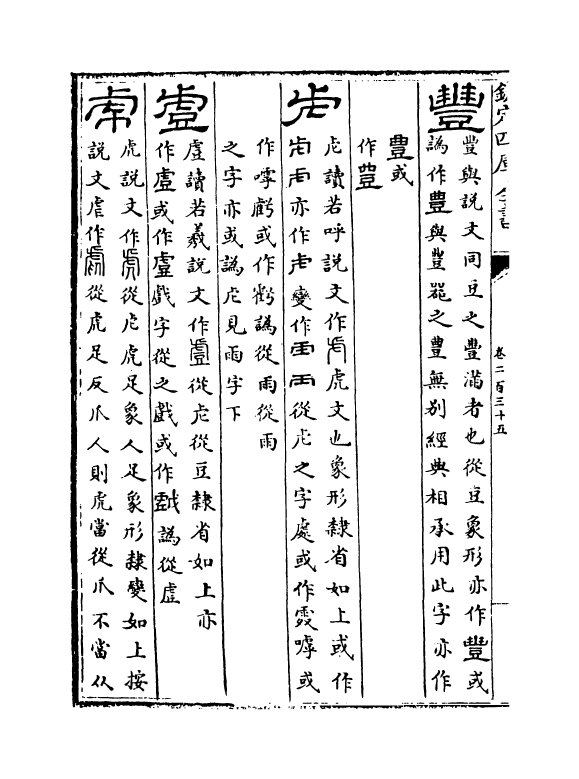 欽定四庫全書
卷二百三十五
豐
豐與說文同豆之豐滿者也從豆象形亦作豐或
譌作豊與豊器之豊無别經典相承用此字亦作
豊或
作豈
虍
虍讀若呼說文作虍虎文也象形隸省如上或作
亦作變作從虍之字處或作䖏嘑或
作㖸虧或作譌從雨從雨
之字亦或譌虍見雨字下
䖒
䖒讀若羲說文作䖒從虍從豆隸省如上亦
作䖒或作䖒戲字從之戲或作譌從虛
虎
虎說文作虎從虍虎足象人足象形隸變如上按
說文虐作從虎足反爪人則虎當從爪不當从